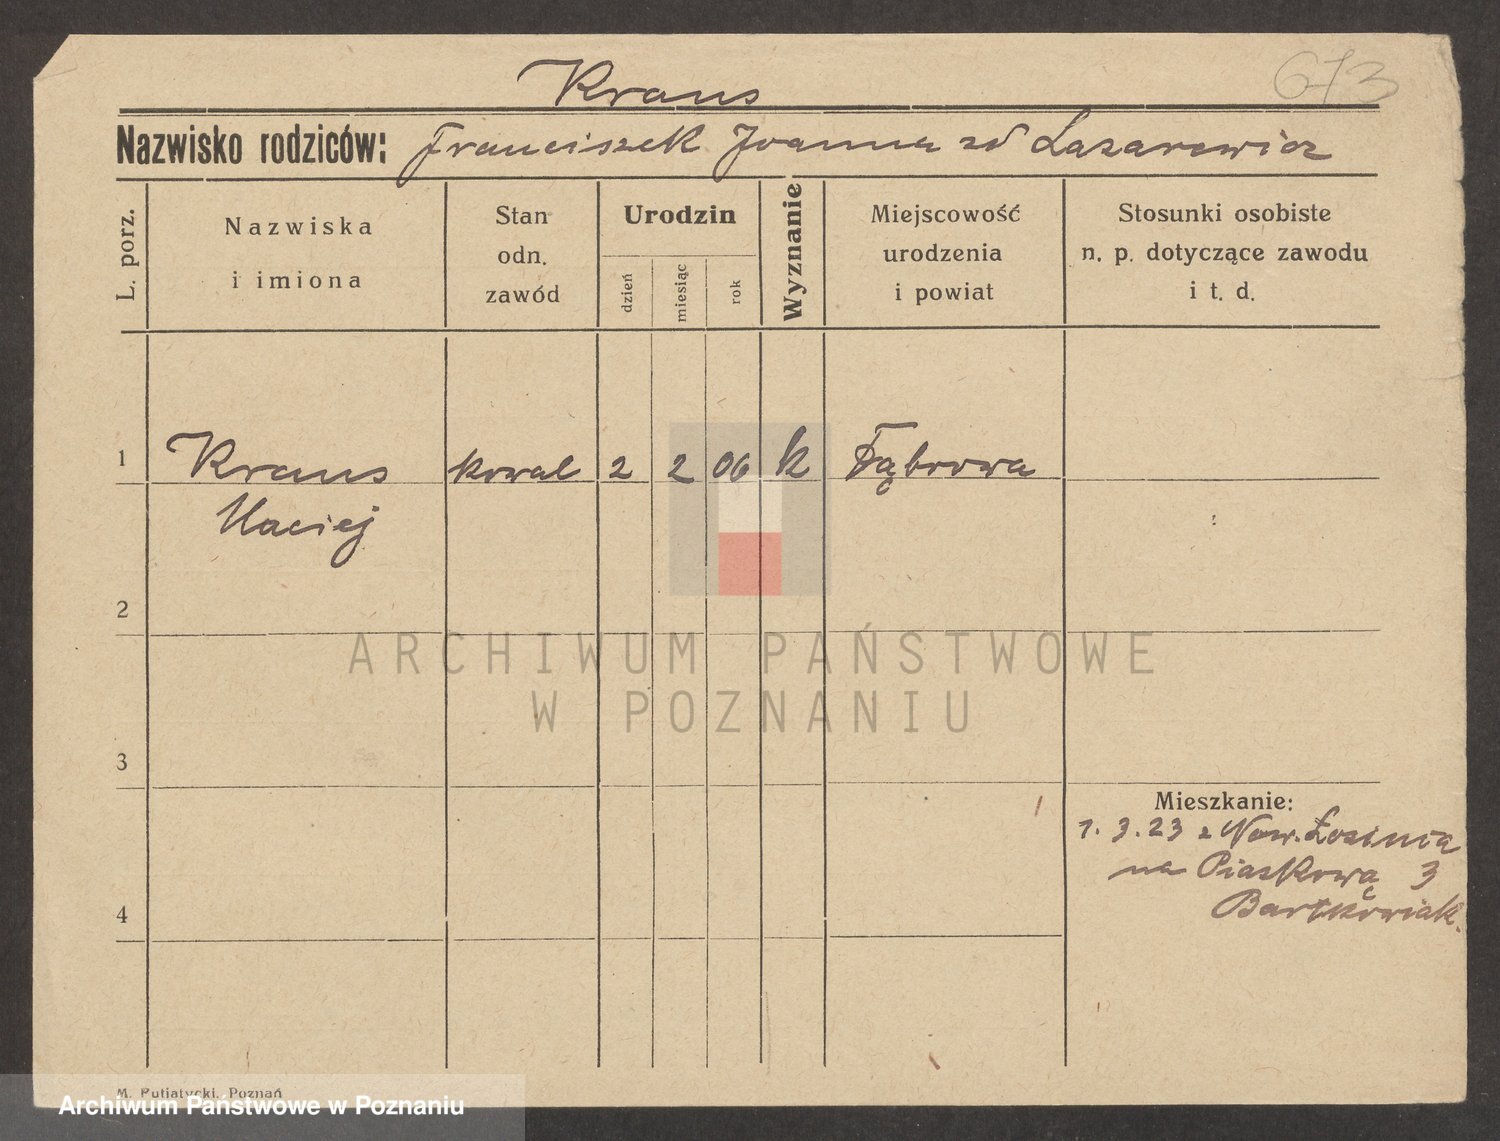 Kraus
673
Nazwisko rodziców: Franciszek Joanna zd Lazarewicz
L. porz.
Nazwiska
i imiona
Stan
odn.
zawód
Urodzin
dzień
miesiąc
rok
Wyznanie
Miejscowość
urodzenia
i powiat
Stosunki osobiste
n. p. dotyczące zawodu
i t. d.
1 Kraus kowal 2 2 06 k Dąbrowa
Maciej
2
ARCHIWUM PAŃSTWOWE
W POZNANIU
3
Mieszkanie:
1. 3. 23 z Now.
na Piaskową 3
4 Bartkowiak.
M. Putiatycki, Poznań
Archiwum Państwowe w Poznaniu